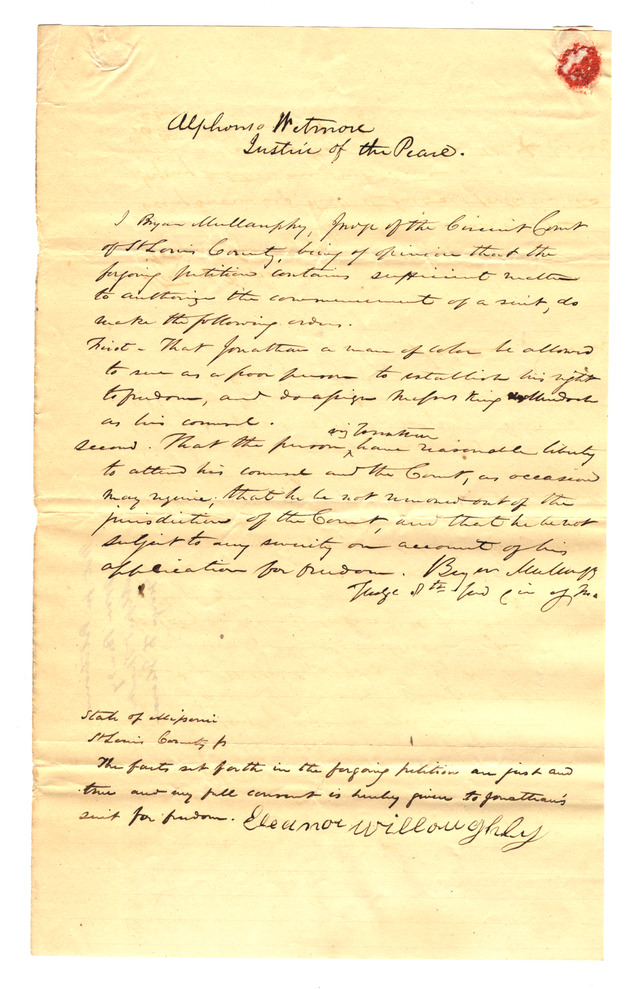 Alphonso Wetmore
Justice of the Peace.
I Bryan Mullanphy, Judge of the Circuit Court
of St Louis County, being of opinion that the
forgoing petition contains sufficient matter
to authorize the commencement of a suit, do
make the following orders.
First - That Jonathan a man of color be allowed
to sue as a poor person to establish his right
to freedom, and do assign Messrs King & Murdoch
as his counsel.
viz Jonathan
second. That the person, have reasonable liberty
to attend his counsel and the Court, as occasion
may require; that he be not removed out of the
jurisdiction of the Court, and that he be not
subject to any severity on account of his
application for freedom. Bryan Mullanphy
Judge 8th Jud Cir of Mo
State of Missouri
St Louis County ss
The facts set forth in the forgoing petition are just and
true and my full consent is hereby given to Jonathan's
suit for freedom. Eleanor Willoughby